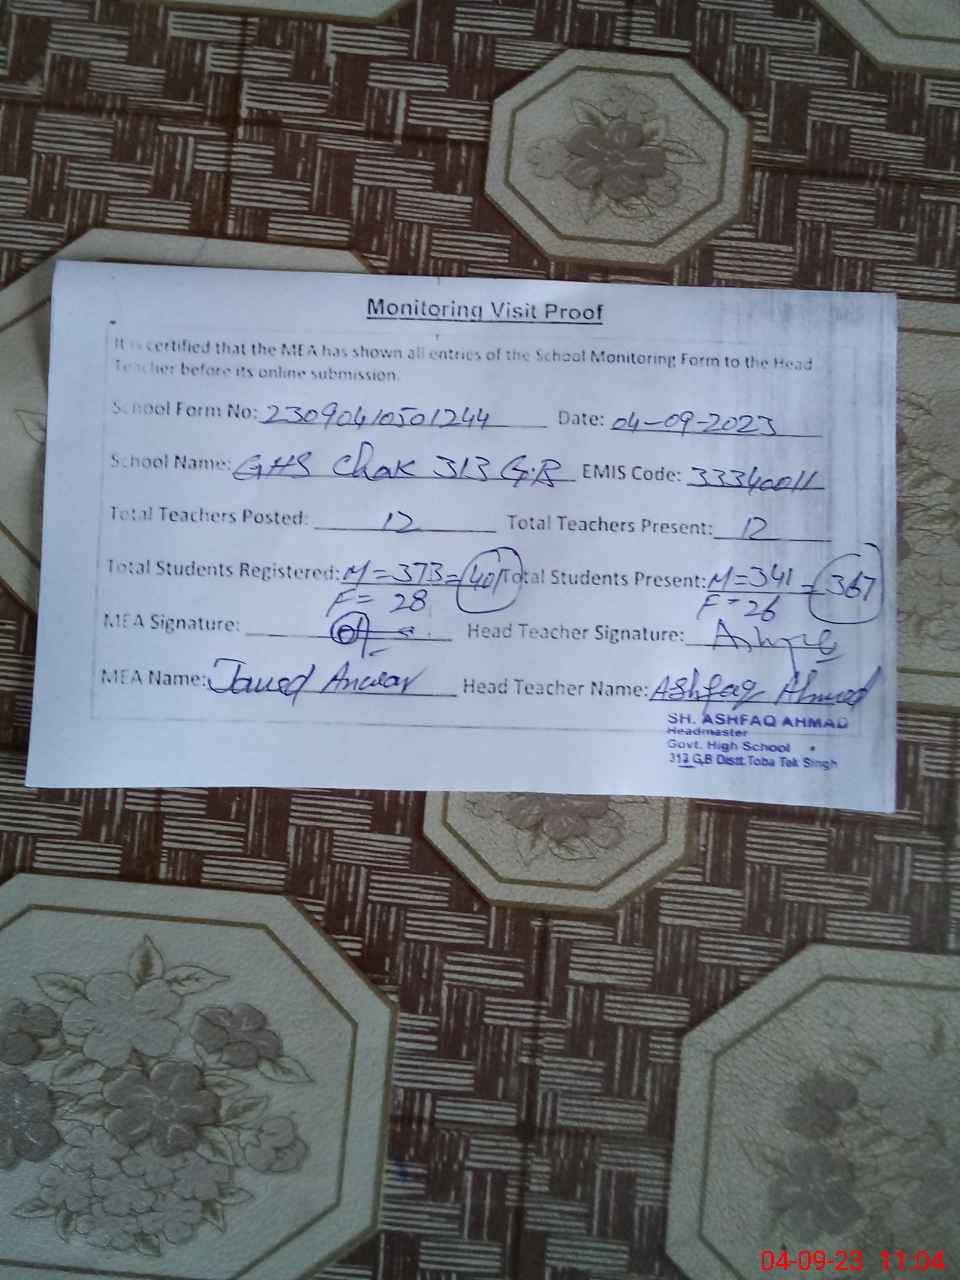 Monitoring Visit Proof
It is certified that the MEA has shown all entries of the School Monitoring Form to the Head
Teacher before its online submission.
School Form No: 23090410501244 Date: 04-09-2023
School Name: GHS Chak 313 G.B EMIS Code: 33340011
Total Teachers Posted: 12 Total Teachers Present: 12
Total Students Registered: M = 373 = 401 Total Students Present: M = 341 = 367
F = 28 F = 26
MEA Signature: Head Teacher Signature:
MEA Name: Javed Anwar Head Teacher Name: Ashfaq Ahmed
SH. ASHFAQ AHMAD
Headmaster
Govt. High School
313 G,B Distt. Toba Tek Singh
04-09-23 11:04